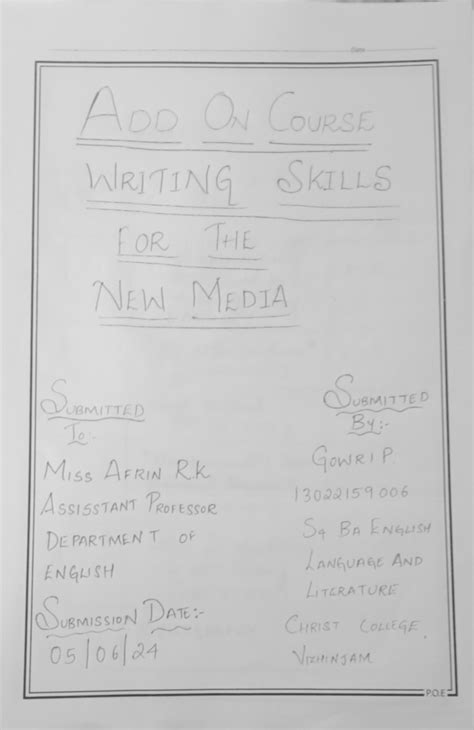 Date
ADD ON COURSE
WRITING SKILLS
FOR THE
NEW MEDIA
SUBMITTED
To:-
MISS AFRIN R.K
ASSISSTANT PROFESSOR
DEPARTMENT OF
ENGLISH
SUBMISSION DATE:-
05/06/24
SUBMITTED
BY:-
GOWRI P.
13022159006
S4 BA ENGLISH
LANGUAGE AND
LITERATURE
CHRIST COLLEGE
VIZHINJAM
P.O.E